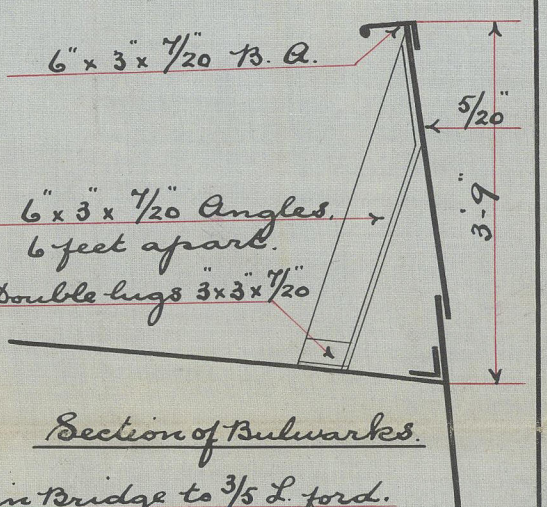 6" x 3" x 7/20" B. A.
5/20"
3'-9"
6" x 3" x 7/20" Angles,
6 feet apart.
Double lugs 3" x 3" x 7/20"
Section of Bulwarks.
in Bridge to 3/5 L. ford.